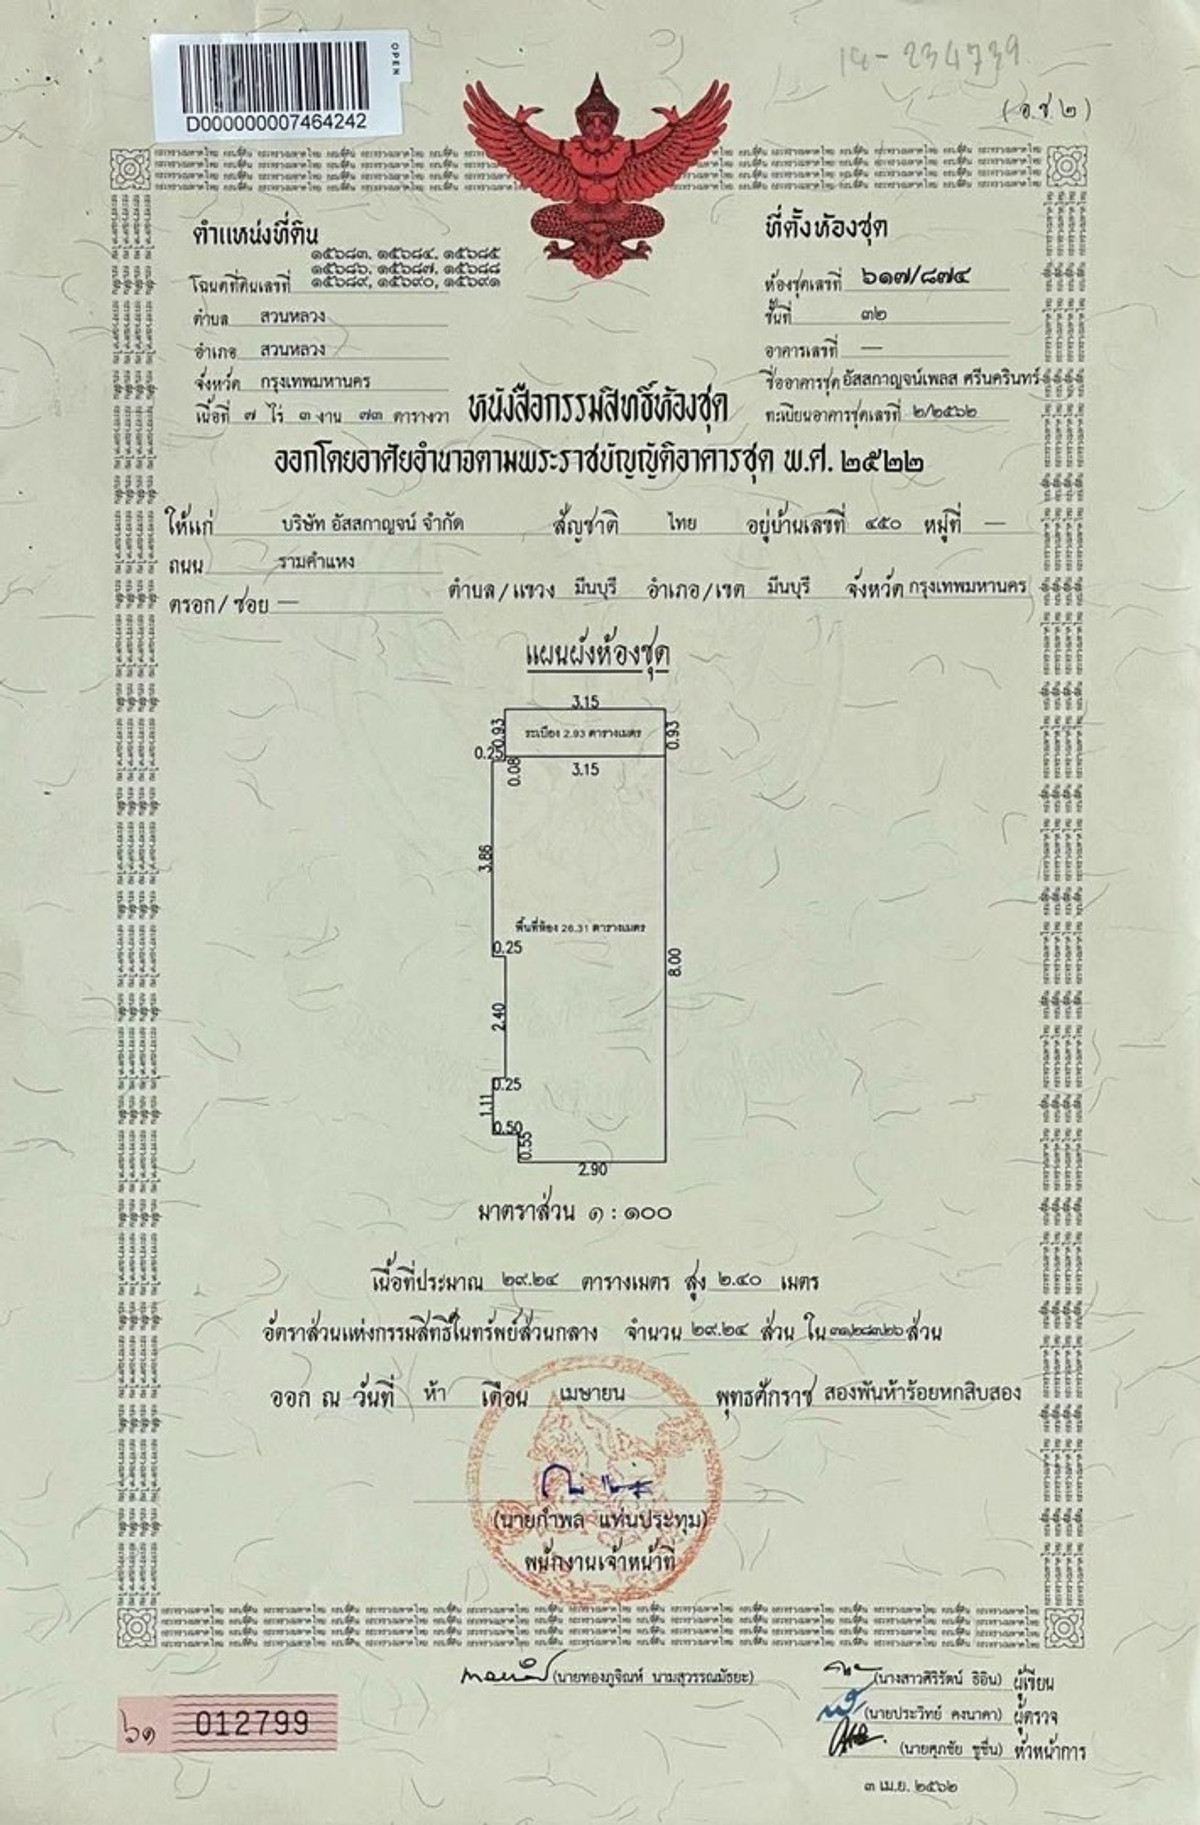 OPEN
D000000007464242
14-234739
(อ.ช.๒)
ตำแหน่งที่ดิน
๑๕๖๘๓, ๑๕๖๘๔, ๑๕๖๘๕
๑๕๖๘๖, ๑๕๖๘๗, ๑๕๖๘๘
โฉนดที่ดินเลขที่ ๑๕๖๘๙, ๑๕๖๙๐, ๑๕๖๙๑
ตำบล สวนหลวง
อำเภอ สวนหลวง
จังหวัด กรุงเทพมหานคร
เนื้อที่ ๗ ไร่ ๓ งาน ๗๓ ตารางวา
ที่ตั้งห้องชุด
ห้องชุดเลขที่ ๖๑๗/๘๗๔
ชั้นที่ ๓๒
อาคารเลขที่ —
ชื่ออาคารชุด อัสสกาญจน์เพลส ศรีนครินทร์
ทะเบียนอาคารชุดเลขที่ ๒/๒๕๖๒
หนังสือกรรมสิทธิ์ห้องชุด
ออกโดยอาศัยอำนาจตามพระราชบัญญัติอาคารชุด พ.ศ. ๒๕๒๒
ให้แก่ บริษัท อัสสกาญจน์ จำกัด สัญชาติ ไทย อยู่บ้านเลขที่ ๔๕๐ หมู่ที่ —
ถนน รามคำแหง
ตรอก/ซอย — ตำบล/แขวง มีนบุรี อำเภอ/เขต มีนบุรี จังหวัด กรุงเทพมหานคร
แผนผังห้องชุด
3.15
0.93
ระเบียง 2.93 ตารางเมตร
0.93
0.25
0.08
3.15
3.86
พื้นที่ห้อง 26.31 ตารางเมตร
0.25
8.00
2.40
0.25
1.11
0.50
0.55
2.90
มาตราส่วน ๑ : ๑๐๐
เนื้อที่ประมาณ ๒๙.๒๔ ตารางเมตร สูง ๒.๔๐ เมตร
อัตราส่วนแห่งกรรมสิทธิ์ในทรัพย์ส่วนกลาง จำนวน ๒๙.๒๔ ส่วน ใน ส่วน
ออก ณ วันที่ ห้า เดือน เมษายน พุทธศักราช สองพันห้าร้อยหกสิบสอง
(นายกำพล แท่นประทุม)
พนักงานเจ้าหน้าที่
(นายทองภูจิณห์ นามสุวรรณมัธยะ)
(นางสาวศิริรัตน์ ธิอิน) ผู้เขียน
(นายประวิทย์ คงนาคา) ผู้ตรวจ
(นายศุภชัย ชูชื่น) หัวหน้าการ
๓ เม.ย. ๒๕๖๒
๖๑ 012799